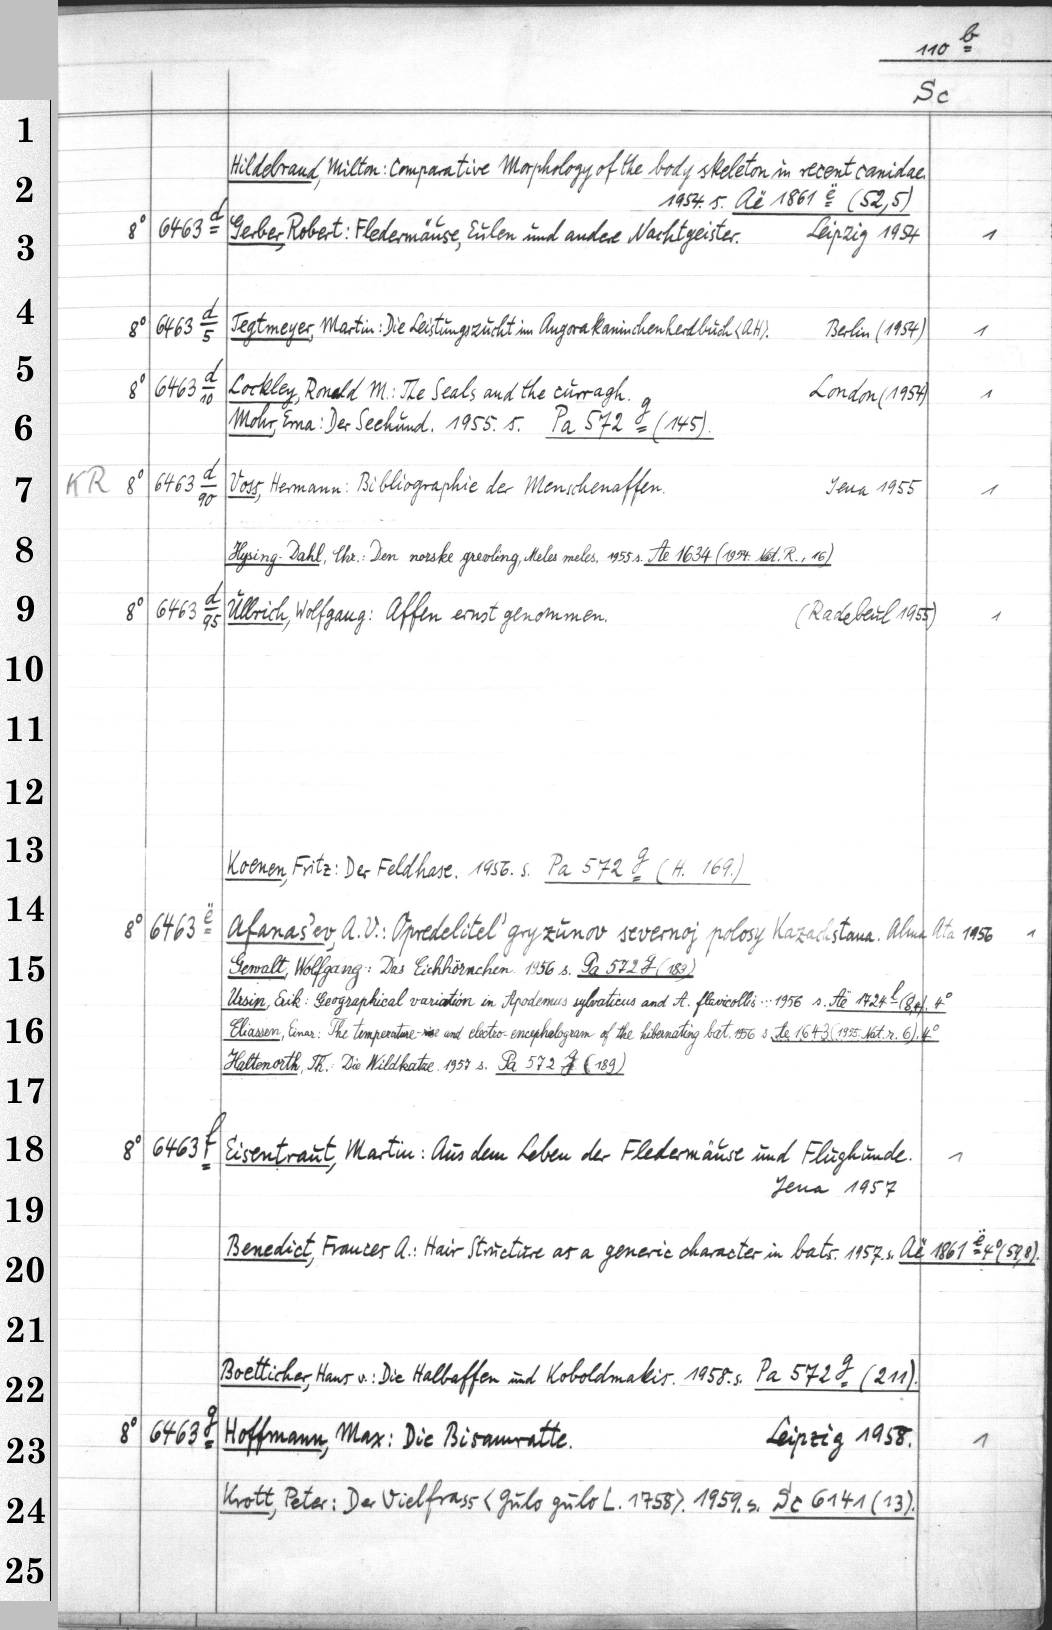 110 b
Sc
1
2
3
4
5
6
7
8
9
10
11
12
13
14
15
16
17
18
19
20
21
22
23
24
25
Hildebrand, Milton: Comparative Morphology of the body skeleton in recent canidae.
1954. s. Aë 1861 ë (52,5)
8° 6463 d Gerber, Robert: Fledermäuse, Eulen und andere Nachtgeister. Leipzig 1954 1
8° 6463 d/5 Tegtmeyer, Martin: Die Leistungszucht im Angorakaninchenherdbuch <AH>. Berlin (1954) 1
8° 6463 d/10 Lockley, Ronald M.: The Seals and the curragh. London (1954) 1
Mohr, Erna: Der Seehund. 1955. s. Pa 572 g (145).
KR 8° 6463 d/90 Voss, Hermann: Bibliographie der Menschenaffen. Jena 1955 1
Hysing-Dahl, Chr.: Den norske grevling, Meles meles. 1955 s. Ae 1634 (1954. Nat. R., 16)
8° 6463 d/95 Ullrich, Wolfgang: Affen ernst genommen. (Radebeul 1955) 1
Koenen, Fritz: Der Feldhase. 1956. s. Pa 572 g (H. 169.)
8° 6463 ë Afanas'ev, A.V.: Opredelitel' gryzunov severnoj polosy Kazachstana. Alma Ata 1956 1
Gewalt, Wolfgang: Das Eichhörnchen. 1956 s. Pa 572 g (183)
Ursin, Erik: Geographical variation in Apodemus sylvaticus and A. flavicollis ... 1956 s. Aë 1724 f (8,4). 4°
Eliassen, Einar: The temperature and electro-encephalogram of the hibernating bat. 1956 s. Ae 1643 (1955. Nat. r. 6). 4°
Haltenorth, Th.: Die Wildkatze. 1957 s. Pa 572 g (189)
8° 6463 f Eisentraut, Martin: Aus dem Leben der Fledermäuse und Flughunde. 1
Jena 1957
Benedict, Frances A.: Hair Structure as a generic character in bats. 1957. s. Aë 1861 ë 4° (59,8).
Boetticher, Hans v.: Die Halbaffen und Koboldmakis. 1958. s. Pa 572 g (211).
8° 6463 g Hoffmann, Max: Die Bisamratte. Leipzig 1958. 1
Krott, Peter: Der Vielfrass <Gulo gulo L. 1758>. 1959. s. Sc 6141 (13).